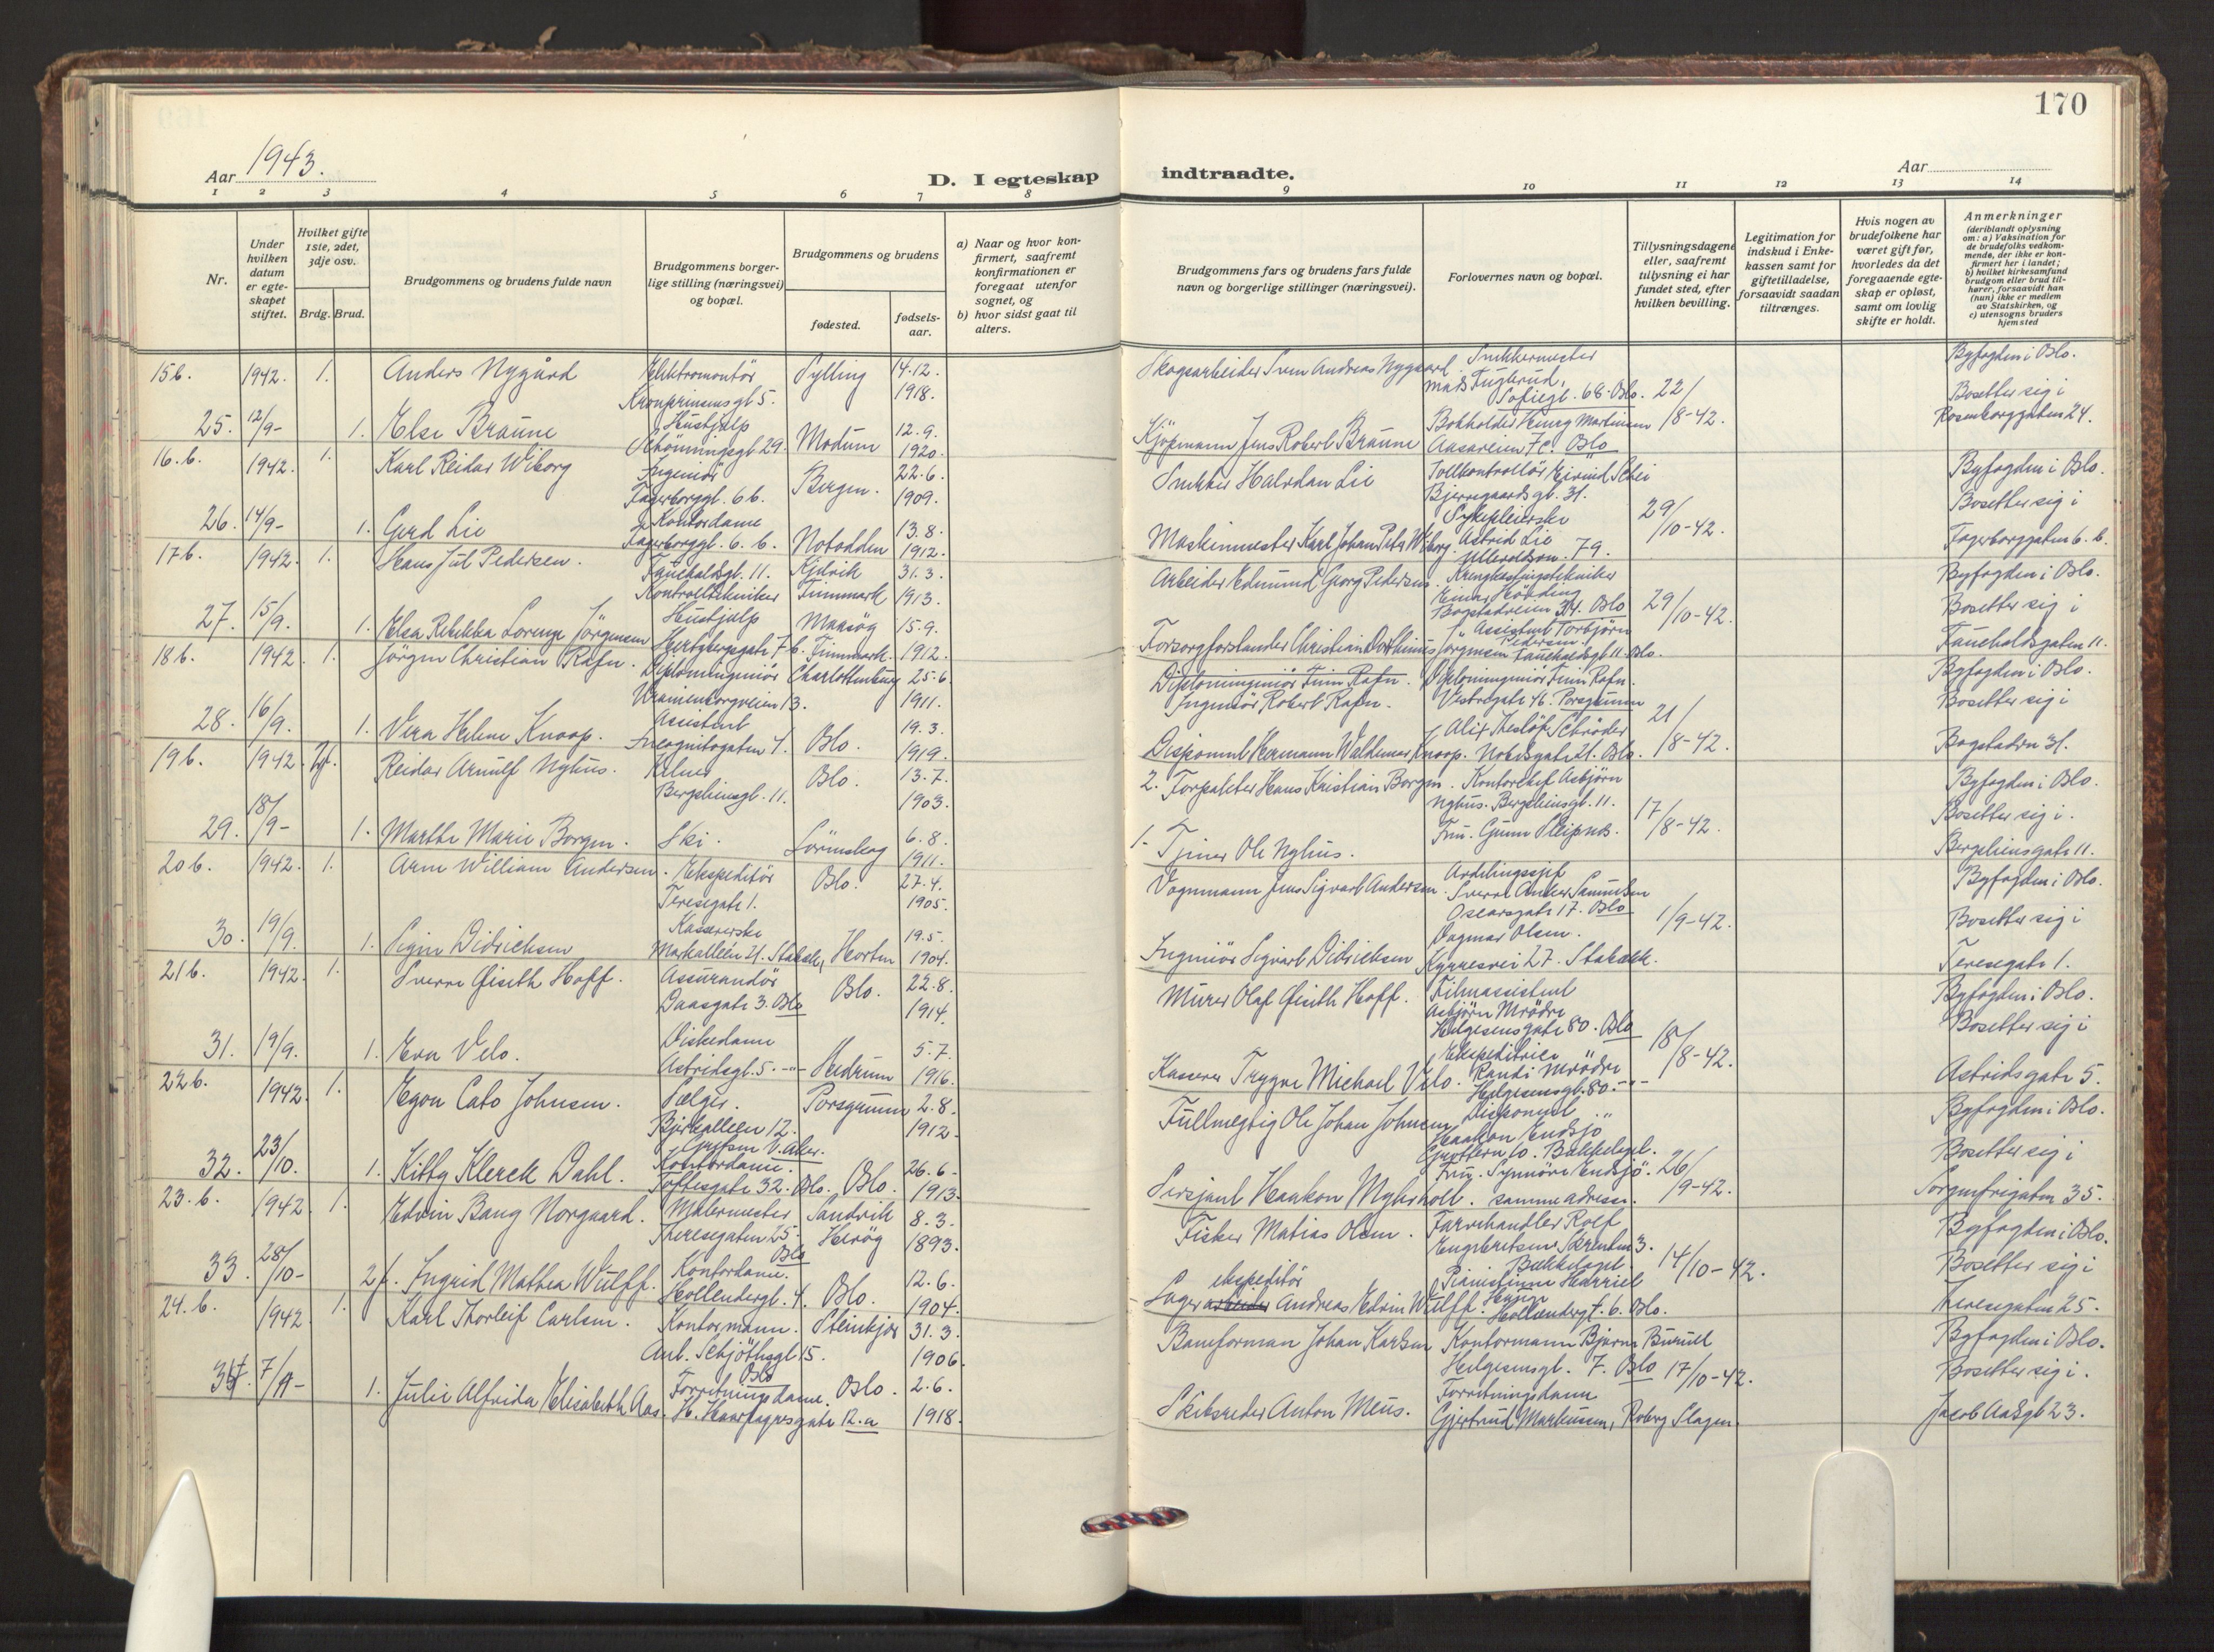 170
Aar 1943.
D. I egteskap indtraadte.
Aar
1 2 3 4 5 6 7 8 9 10 11 12 13 14
Nr.
Under hvilken datum er egte-skapet stiftet.
Hvilket gifte 1ste, 2det, 3dje osv.
Brdg. Brud.
Brudgommens og brudens fulde navn
Brudgommens borger-lige stilling (næringsvei) og bopæl.
Brudgommens og brudens
fødested.
fødsels-aar.
a) Naar og hvor kon-firmert, saafremt konfirmationen er foregaat utenfor sognet, og
b) hvor sidst gaat til alters.
Brudgommens fars og brudens fars fulde navn og borgerlige stillinger (næringsvei).
Forlovernes navn og bopæl.
Tillysningsdagene eller, saafremt tillysning ei har fundet sted, efter hvilken bevilling.
Legitimation for indskud i Enke-kassen samt for giftetilladelse, forsaavidt saadan tiltrænges.
Hvis nogen av brudefolkene har været gift før, hvorledes da det foregaaende egte-skap er opløst, samt om lovlig skifte er holdt.
Anmerkninger (deriblandt oplysning om: a) Vaksination for de brudefolks vedkom-mende, der ikke er kon-firmert her i landet; b) hvilket kirkesamfund brudgom eller brud til-hører, forsaavidt han (hun) ikke er medlem av Statskirken, og c) utensogns bruders hjemsted
15 b. 1942. 1. Anders Nygård Elektromontör Kronprinsensgt 5. Sylling 14.12. 1918. Skogsarbeider Sven Andreas Nygaard Snekkermester Mads Fuglerud, Sofiegt. 68. Oslo. 22/8-42. Byfogden i Oslo.
25. 12/9- 1. Else Braune Hushjelp Schönningsgt 29. Modum 12.9. 1920. Kjöpmann Jens Robert Braune Bokholder Henry Martinsen Aasaveien 7c. Oslo Bosetter sig i Rosenborggaten 24.
16.b. 1942. 1. Karl Reidar Wiborg Ingeniör Fagerborggt. 6b. Bergen. 22.6. 1909. Snekker Halvdan Lie Tollkontrollör Eivind Schei Bjerregaards gt. 31. 29/10-42. Byfogden i Oslo.
26. 14/9- 1. Gerd Lie Kontordame Fagerborggt. 6. b. Notodden 13.8. 1912. Maskinmester Karl Johan Peter Wiborg. Sykepleierske Astrid Lie 79. Bosetter sig i Fagerborggaten 6. b.
17 b. 1942. 1. Hans Jul Pedersen. Fauchaldsgt. 11. Kontrolltekniker Kjelvik Finnmark 31.3. 1913. Arbeider Edmund Georg Pedersen. Kringkastingstekniker Einar Hovding Bogstadveien 34. Oslo 29/10-42. Byfogden i Oslo.
27. 15/9. 1. Elsa Rebekka Lorenze Jörgensen Hushjelp Hertzbergsgate 7 b. Maasöy Finnmark. 15.9. 1912. Forsorgforstander Christian Jörgensen Assistent Torbjörn Pedersen. Fauchaldsgt 11. Oslo. Bosetter sig i Fauchaldsgaten 11.
18 b. 1942. 1. Jörgen Christian Rafn. Diplomingeniör Uranienborgveien 13. Charlottenburg 25.6. 1911. Diplomingeniör Finn Rafn. Ingeniör Robert Rafn. Diplomingeniör Finn Rafn. Porsgrunn 21/8-42. Byfogden i Oslo.
28. 16/9. 1. Vera Helene Knoop. Assistent Incognitogaten 7. Oslo. 19.3. 1919. Disponent Hermann Waldemar Knoop. Alix Schröder Nobelsgate 21. Oslo. Bosetter sig i Bogstadvn 31.
19 b. 1942. 2f. Reidar Arnulf Nyhus. Kelner Bergsliensgt. 11. Oslo. 13.7. 1903. 2. Forpakter Hans Kristian Borgen. Kontorchef Asbjörn Nyhus. Bergsliensgt. 11. 17/8-42. Byfogden i Oslo.
29. 18/9- 1. Marthe Marie Borgen. Ski. Lörenskog 6.8. 1911. 1. Ole Nyhus. Fru. Gunn Sleipnes. Bosetter sig i. Bergsliensgate 11.
20 b. 1942. 1. Arne William Andersen. Ekspeditör Teresegate 1. Oslo. 27.4. 1905. Vognmann Jens Sigvart Andersen. Avdelingssjef Sverre Anker Samuelsen Oscarsgate 17. Oslo 1/9-42. Byfogden i Oslo.
30. 19/9. 1. Signe Didrichsen Kassererske Markalléen 21. Stabekk, Horten 19.5. 1904. Ingeniör Sigvart Didrichsen Dagmar Olsen. 27. Stabekk. Bosetter sig i Teresegate 1.
21 b. 1942. 1. Sverre Öiseth Hoff. Assurandör Daasgate 3. Oslo Oslo. 22.8. 1914. Murer Olaf Öiseth Hoff. Filmassistent Asbjörn Mrödre Helgesensgate 80. Oslo 18/8-42. Byfogden i Oslo.
31. 19/9. 1. Eva Velo. Diskedame Astridsgt. 5. -"- Hedrum 5.7. 1916. Kasserer Trygve Michael Velo. Ekspeditrice Randi Mrödre Helgesensgt. 80. -"- Bosetter sig i Astridsgate 5.
22 b. 1942. 1. Egon Cato Johnsen. Selger. Bjerkalléen 12. Grefsen V. Aker. Porsgrunn 2.8. 1912. Fullmegtig Ole Johan Johnsen Disponent Haakon Endsjö 10. Bekkelaget. 26/9-42. Byfogden i Oslo.
32. 23/10. 1. Kitty Klerck Dahl. Kontordame. Toftesgate 32. Oslo. Oslo. 26.6. 1913. Sersjant Haakon Myhrholt. Fru. Synnöve Endsjö. samme adresse. Bosetter sig i Sorgenfrigaten 35.
23. b. 1942. 1. Edvin Bang Norgaard. Malermester Theresegaten 25. Oslo Sandvik Heröy 8.3. 1893. Fisker Matias Olsen. Farvehandler Rolf Engebretsen 3. Bekkelaget. 14/10-42. Byfogden i Oslo.
33. 28/10- 2f. Ingrid Mathea Wulff. Kontordame. Hollendergt. 4. Oslo. 12.6. 1904. Lagerekspeditör Andreas Edvin Wulff. Pianistinne Harriet Hollendergt. 6. Oslo. Bosetter sig i Theresegaten 25.
24. b. 1942. 1. Karl Thorleif Carlsen. Kontormann. Anb. Schjöthsgt 15. Oslo Steinkjer 31.3. 1906. Baneformann Johan Karlsen Kontormann Bjarne Helgesensgt. 7. Oslo 17/10-42. Byfogden i Oslo.
34. 7/11- 1. Julie Alfrida Elisabeth Aas. Forretningsdame. H. Haarfagresgate 12.a Oslo. 2.6. 1918. Skibsreder Anton Meus. Forretningsdame Gjertrud Markussen, Roberg Slagen. Bosetter sig i. Jacob Aallsgt 23.